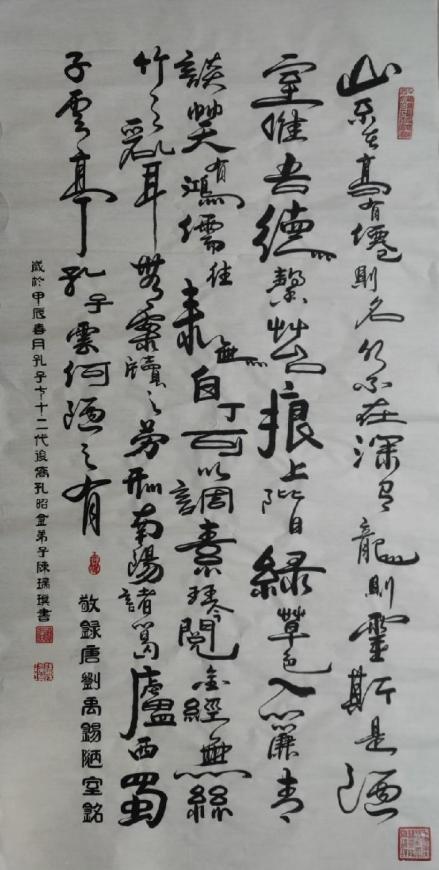 山不在高有僊則名水不在深有龍則靈斯是陋
室惟吾德馨苔痕上階綠草色入簾青
談笑有鴻儒往來無白丁可以調素琴閱金經無絲
竹之亂耳無案牘之勞形南陽諸葛廬西蜀
子雲亭孔子雲何陋之有
敬錄唐劉禹錫陋室銘
歲於甲辰春月孔子七十二代後裔孔昭金弟子陳瑞書